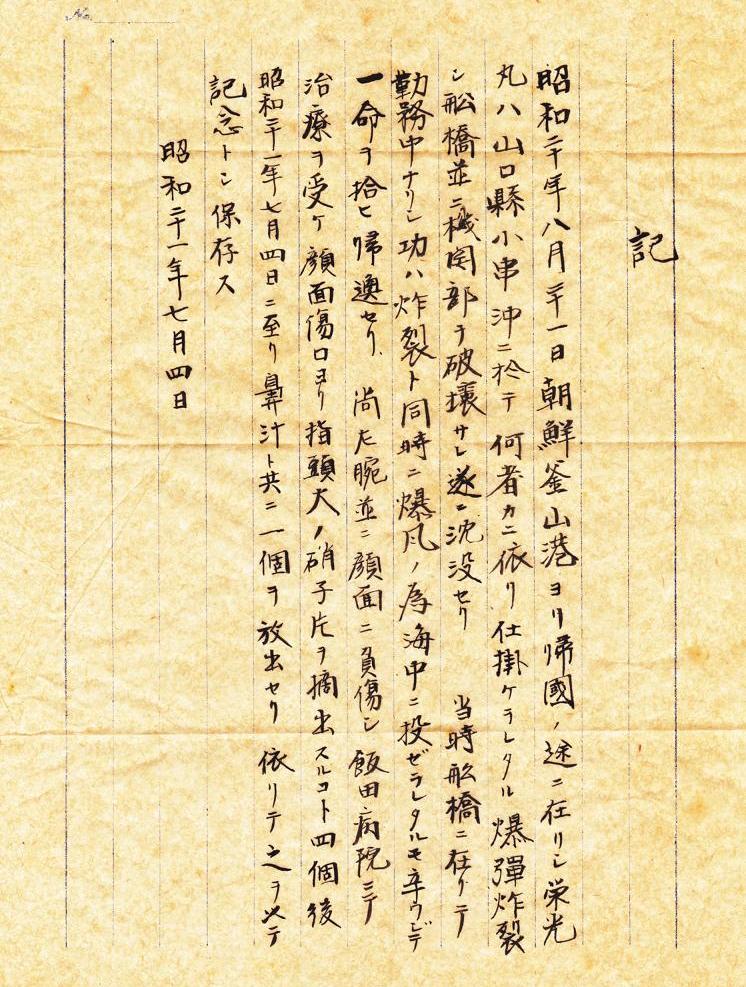 No.
記
昭和二十年八月二十一日朝鮮釜山港ヨリ帰國ノ途ニ在リシ栄光
丸ハ山口縣小串沖ニ於テ何者カニ依リ仕掛ケラレタル爆彈炸裂
シ船橋並ニ機関部ヲ破壊サレ遂ニ沈没セリ 当時船橋ニ在リテ
勤務中ナリシ功ハ炸裂ト同時ニ爆風ノ為海中ニ投ゼラレタルモ辛ウジテ
一命ヲ拾ヒ帰還セリ、尚左腕並ニ顔面ニ負傷シ飯田病院ニテ
治療ヲ受ケ顔面傷口ヨリ指頭大ノ硝子片ヲ摘出スルコト四個後
昭和二十一年七月四日ニ至リ鼻汁ト共ニ一個ヲ放出セリ 依リテ之ヲ以テ
記念トシ保存ス
昭和二十一年七月四日